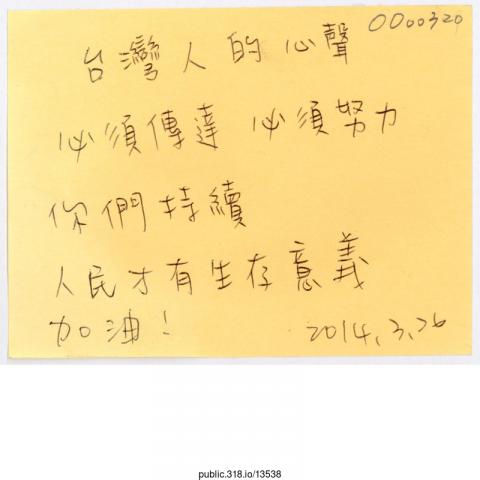 0000320
台灣人的心聲
必須傳達 必須努力
你們持續
人民才有生存意義
加油!
2014.3.26
public.318.io/13538